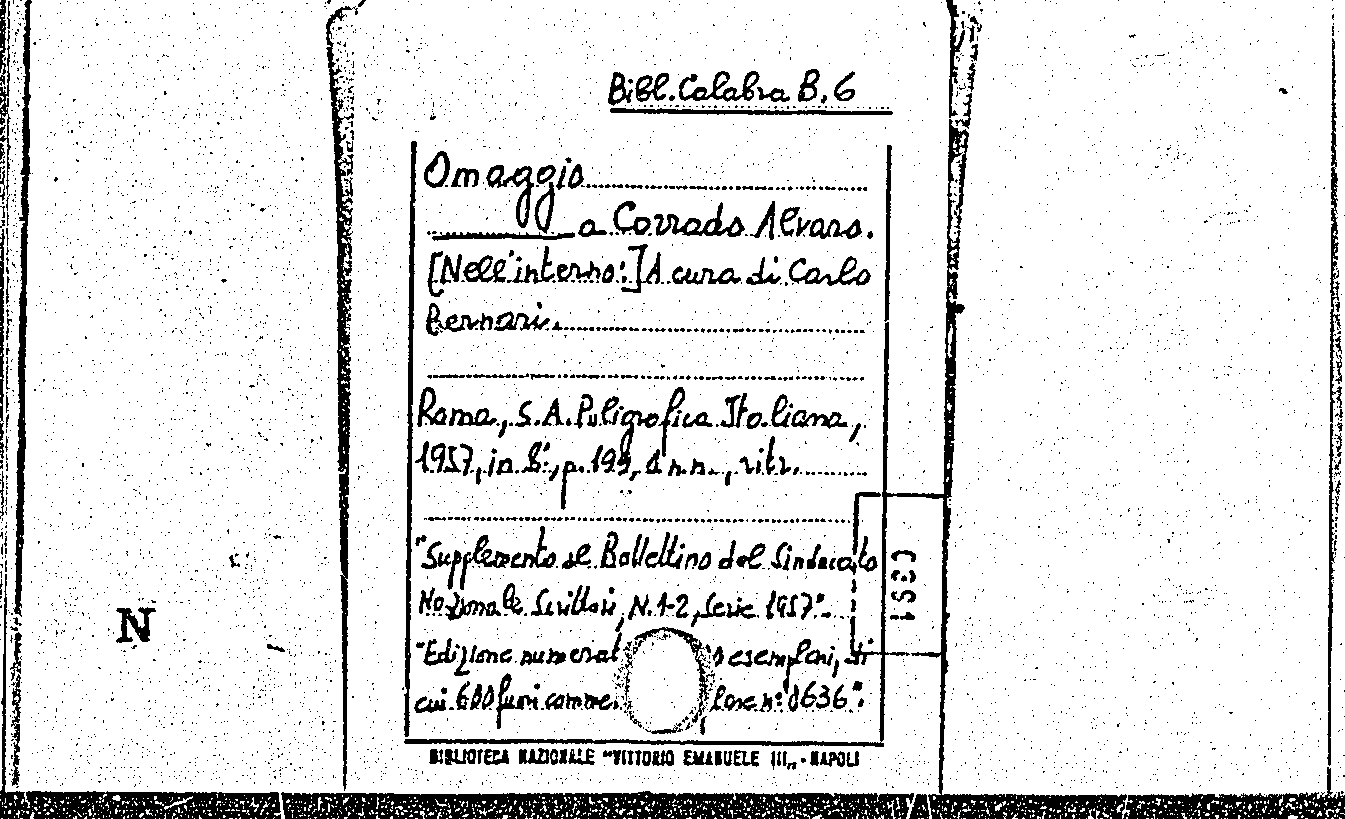 Bibl. Calabra B. 6
Omaggio
a Corrado Alvaro.
[Nell'interno:] A cura di Carlo
Bernari.
Roma, S.A. Poligrafica Italiana,
1957, in 8°, p. 199, 1 n.n., ritr.
"Supplemento al Bollettino del Sindacato
Nazionale Scrittori, N. 1-2, Serie 1957".
"Edizione numerat esemplari, di
cui 600 fuori comme lare n: 0636".
BIBLIOTECA NAZIONALE "VITTORIO EMANUELE III„ - NAPOLI
N